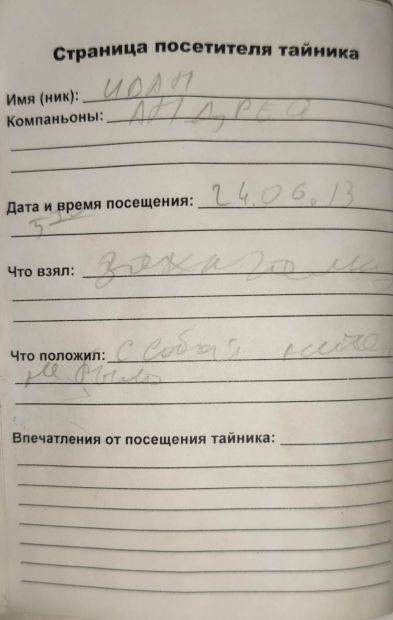 Страница посетителя тайника
Имя (ник): ИОАН
Компаньоны: АНДРЕЙ
Дата и время посещения: 24.06.13
5
Что взял: зажигалку
Что положил: с собой ничего
не было
Впечатления от посещения тайника: